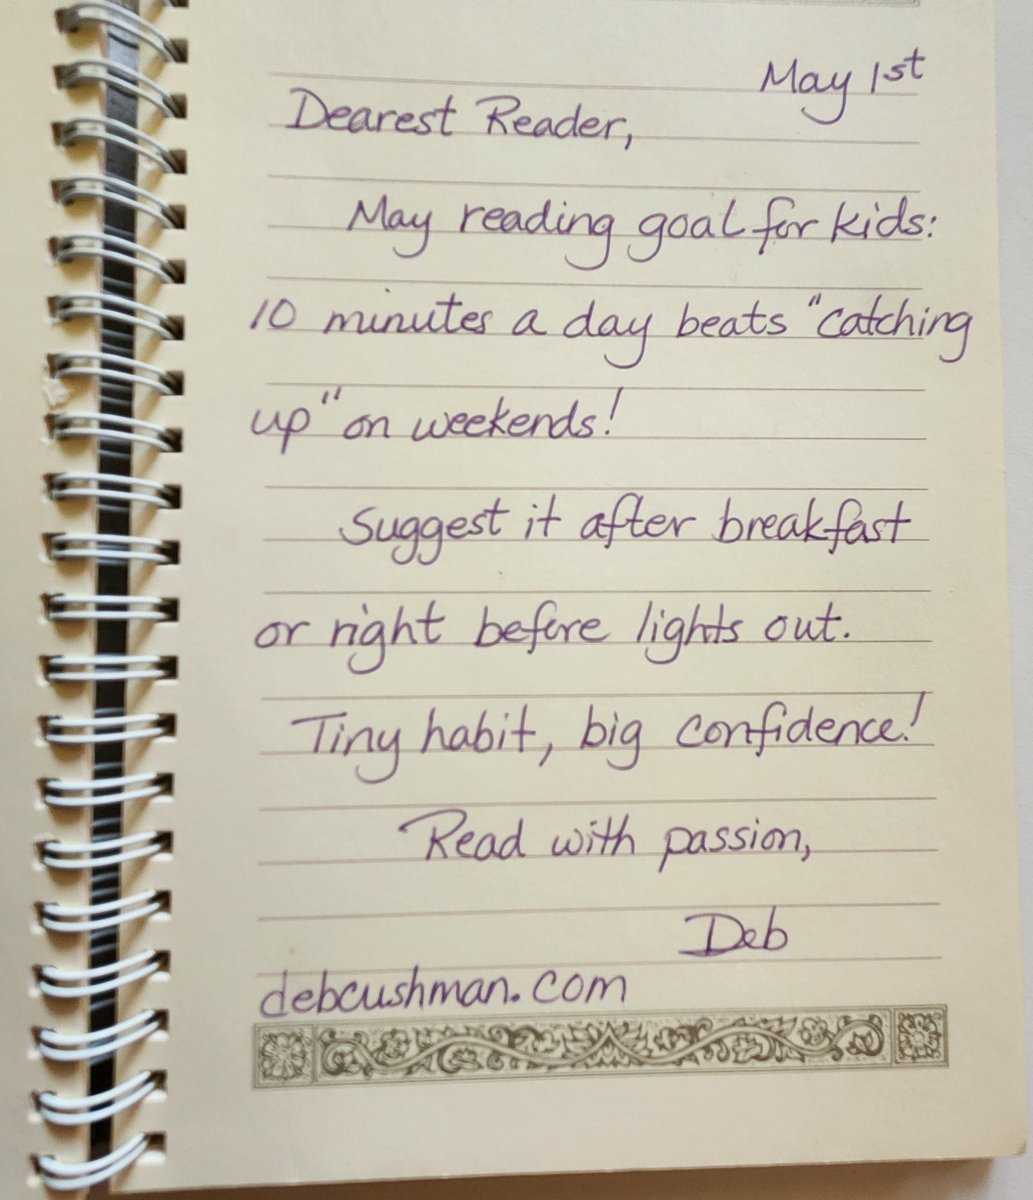 May 1st
Dearest Reader,
May reading goal for kids:
10 minutes a day beats "catching
up" on weekends!
Suggest it after breakfast
or right before lights out.
Tiny habit, big confidence!
Read with passion,
Deb
debcushman.com